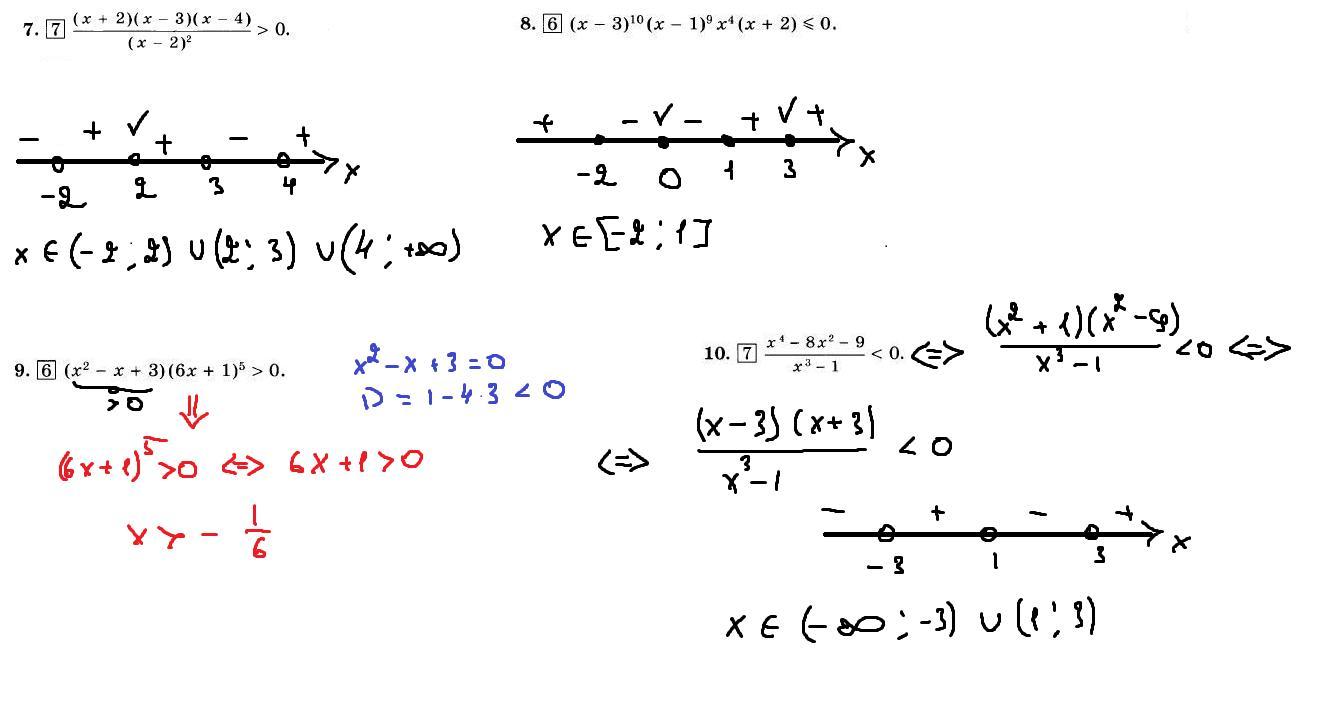 7. 7 (x + 2)(x − 3)(x − 4) / (x − 2)² > 0.
− + ✓ + − +
-2 2 3 4 x
x ∈ (-2; 2) ∪ (2; 3) ∪ (4; +∞)
8. 6 (x − 3)¹⁰(x − 1)⁹x⁴(x + 2) ⩽ 0.
+ − ✓ − + ✓ +
-2 0 1 3 x
x ∈ [-2; 1]
9. 6 (x² − x + 3)(6x + 1)⁵ > 0.
>0
⇓
x² − x + 3 = 0
D = 1 − 4·3 < 0
(6x+1)⁵ > 0 <=> 6x + 1 > 0
x > − 1/6
10. 7 (x⁴ − 8x² − 9) / (x³ − 1) < 0. <=> (x² + 1)(x² − 9) / (x³ − 1) < 0 <=>
<=> (x − 3)(x + 3) / (x³ − 1) < 0
− + − +
-3 1 3 x
x ∈ (-∞; -3) ∪ (1; 3)